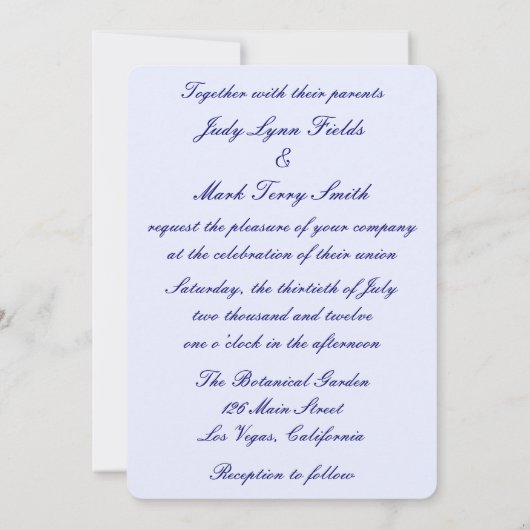 Together with their parents
Judy Lynn Fields
&
Mark Terry Smith
request the pleasure of your company
at the celebration of their union
Saturday, the thirtieth of July
two thousand and twelve
one o'clock in the afternoon
The Botanical Garden
126 Main Street
Los Vegas, California
Reception to follow